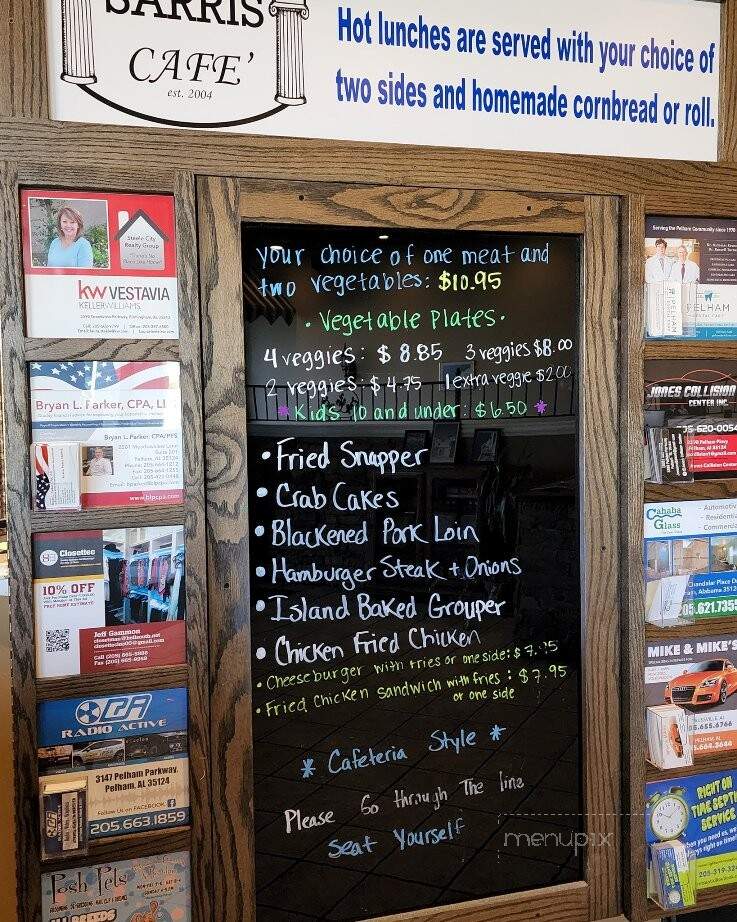 SARRIS
CAFE'
est. 2004
Hot lunches are served with your choice of
two sides and homemade cornbread or roll.
your choice of one meat and
two vegetables: $10.95
• Vegetable Plates •
4 veggies: $8.85 3 veggies $8.00
2 veggies: $4.75 1 extra veggie $2.00
* Kids 10 and under: $6.50 *
• Fried Snapper
• Crab Cakes
• Blackened Pork Loin
• Hamburger Steak + Onions
• Island Baked Grouper
• Chicken Fried Chicken
• Cheeseburger with fries or one side: $7.25
• Fried Chicken Sandwich with fries : $7.95
or one side
* Cafeteria Style *
Please Go through The line
Seat Yourself
menupix
Steele City
Realty Group
kw VESTAVIA
KELLERWILLIAMS.
Bryan L. Farker, CPA, LL
Bryan L. Farker, CPA/PFS
www.blpcpa.com
Closettec
10% OFF
Jeff Gammon
Call (205) 665-5888
Fax (205) 665-9268
CA
RADIO ACTIVE
3147 Pelham Parkway,
Pelham, AL 35124
Follow Us on FACEBOOK
205.663.1859
Posh Pets
ALL BREEDS
Serving the Pelham Community since 1978
PELHAM
JONES COLLISION
CENTER INC.
205-620-0054
Cahaba
Glass
- Automotiv
- Residentia
- Commercia
Chandalar Place D
205.621.7355
MIKE & MIKE'S
RIGHT ON
TIME SEPTI
SERVICE